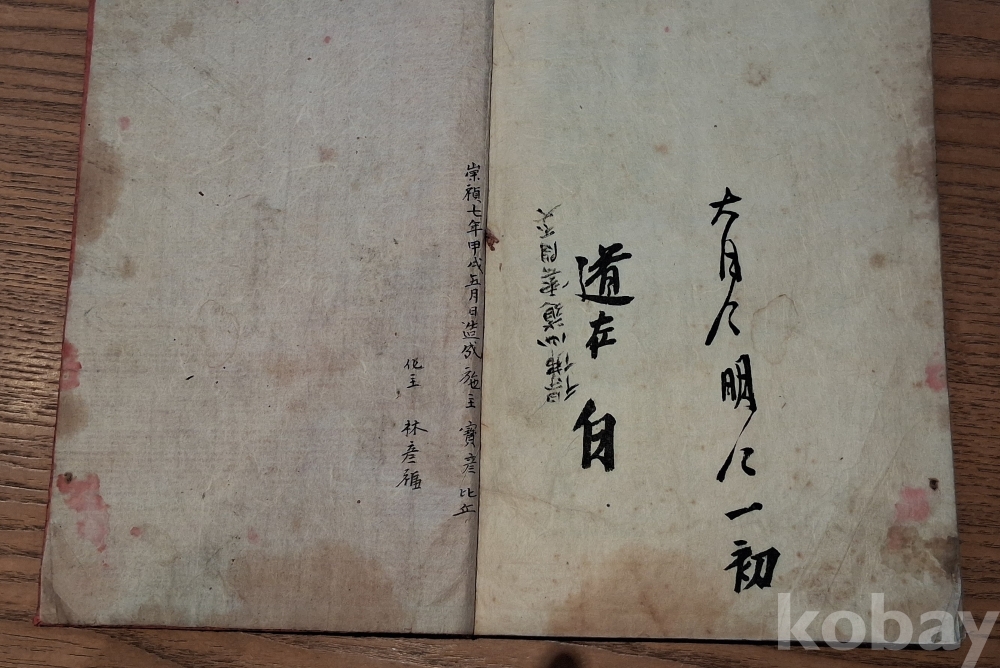 大月〻明〻一初
道在自
崇禎七年甲戌五月日造成 施主 寶彦 比丘
化主 林彦福
kobay